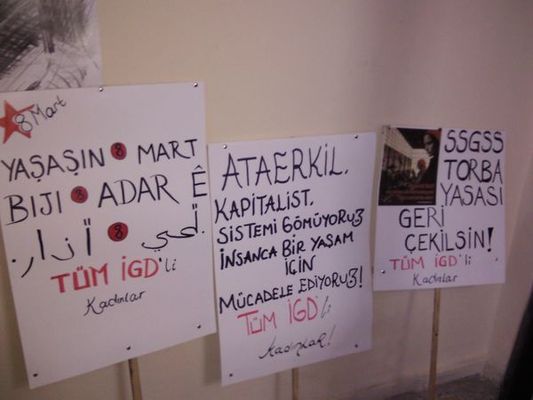 8 Mart
YAŞAŞIN 8 MART
BIJI 8 ADAR Ê
8
TÜM İGD'li
Kadınlar
ATAERKİL.
KAPİTALİST.
SİSTEMİ GÖMÜYORUZ
İNSANCA BİR YAŞAM
İÇİN
MÜCADELE EDİYORUZ!
TÜM İGD'li
Kadınlar!
SSGSS
TORBA
YASASI
GERİ
ÇEKİLSİN!
TÜM İGD'li
Kadınlar